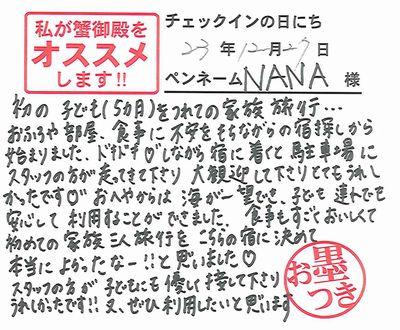 私が蟹御殿を
オススメ
します!!
チェックインの日にち
23年12月29日
ペンネーム NANA 様
初の子ども(5カ月)をつれての家族旅行…
おふろや部屋、食事に不安をもちながらの宿探しから
始まりました、ドキドキ♡しながら宿に着くと駐車場に
スタッフの方が走ってきて下さり大歓迎して下さりとてもうれし
かったです♡おへやからは海が一望でき、子ども連れでも
安心して利用することができました。食事もすごくおいしくて
初めての家族三人旅行をこちらの宿に決めて
本当によかったなー!!と思いました♡
スタッフの方が子どもにも優しく接して下さり
うれしかったです!!又、ぜひ利用したいと思います
お墨つき